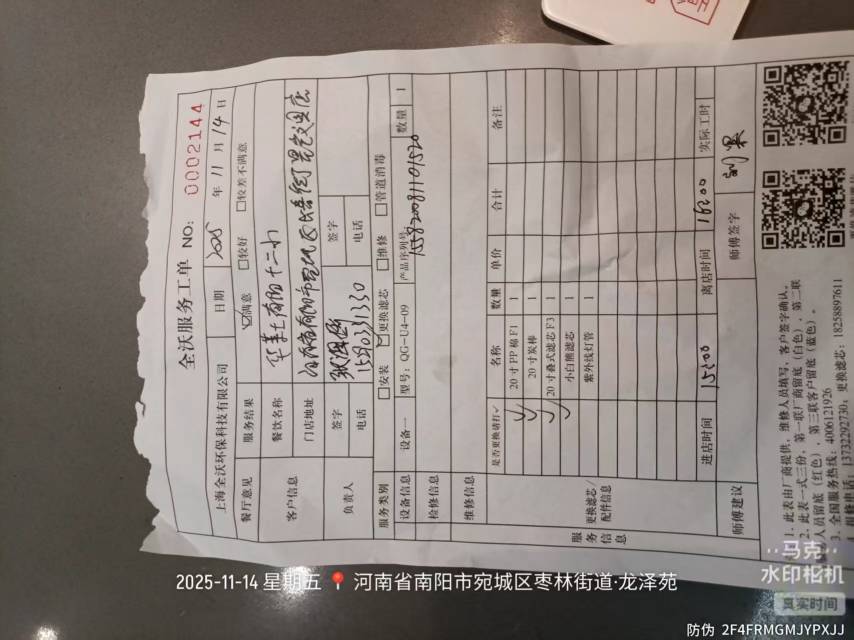 全沃服务工单 NO: 0002144
上海全沃环保科技有限公司 日期 2025 年 11 月 14 日
餐厅意见 服务结果 ☑满意 □较好 □较差不满意
客户信息 餐饮名称
门店地址
负责人 签字 签字
电话 电话
服务类别 □安装 ☑更换滤芯 □维修 □管道消毒
设备信息 设备一 型号: QG-U4-09 产品序列号 数量 1
检修信息
维修信息
服务信息 更换滤芯/配件信息 是否更换请打✓ 名称 数量 单价 合计 备注
✓ 20 寸 PP 棉 F1 1
✓ 20 寸炭棒 1
✓ 20 寸叠式滤芯 F3 1
小白熊滤芯 1
紫外线灯管 1
进店时间 15:00 离店时间 16:00 实际工时
师傅建议 师傅签字
1. 此表由厂商提供, 维修人员填写, 客户签字确认。
2. 此表一式三份, 第一联厂商留底(白色), 第二联
人员留底(红色), 第三联客户留底(蓝色)。
3. 全国服务热线: 4006121926
4. 报修电话: 13732292730; 更换滤芯: 18258897611
马克
水印相机
真实时间
2025-11-14 星期五 河南省南阳市宛城区枣林街道·龙泽苑
防伪 2F4FRMGMJYPXJJ